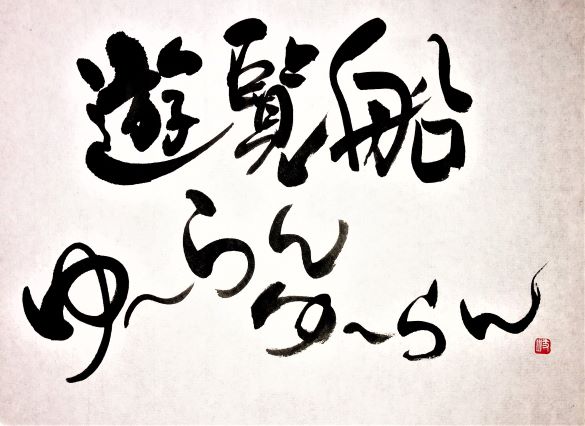 遊覧船
ゆ〜らん
ゆ〜らん